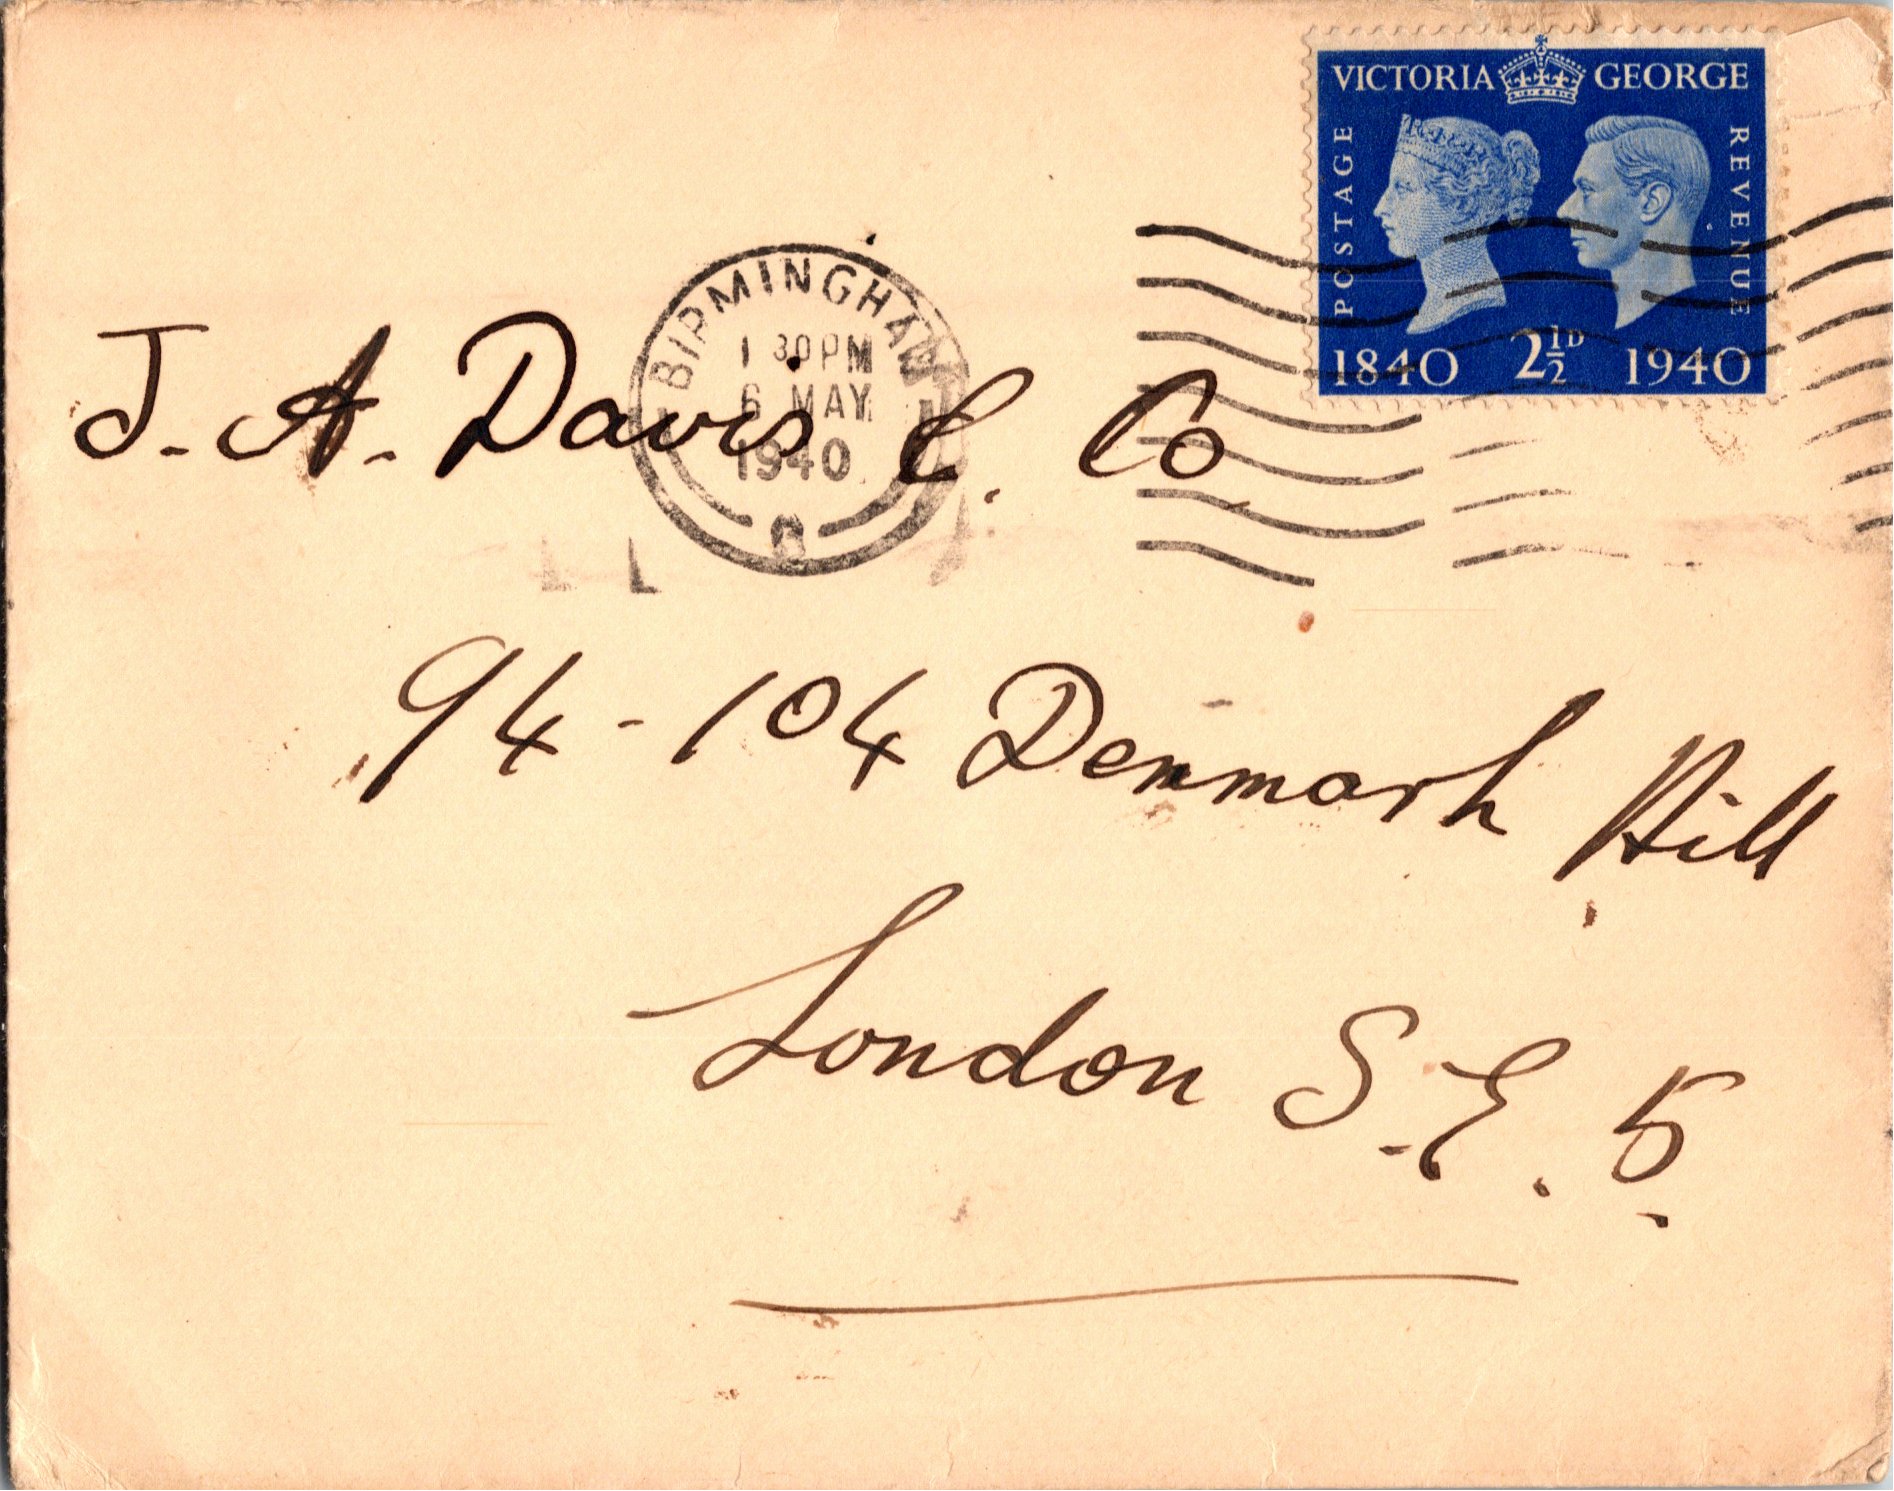 VICTORIA GEORGE
POSTAGE
REVENUE
1840 2½D 1940
BIRMINGHAM
1 30 PM
6 MAY
1940
J. A. Davis & Co
94-104 Denmark Hill
London S.E. 5.